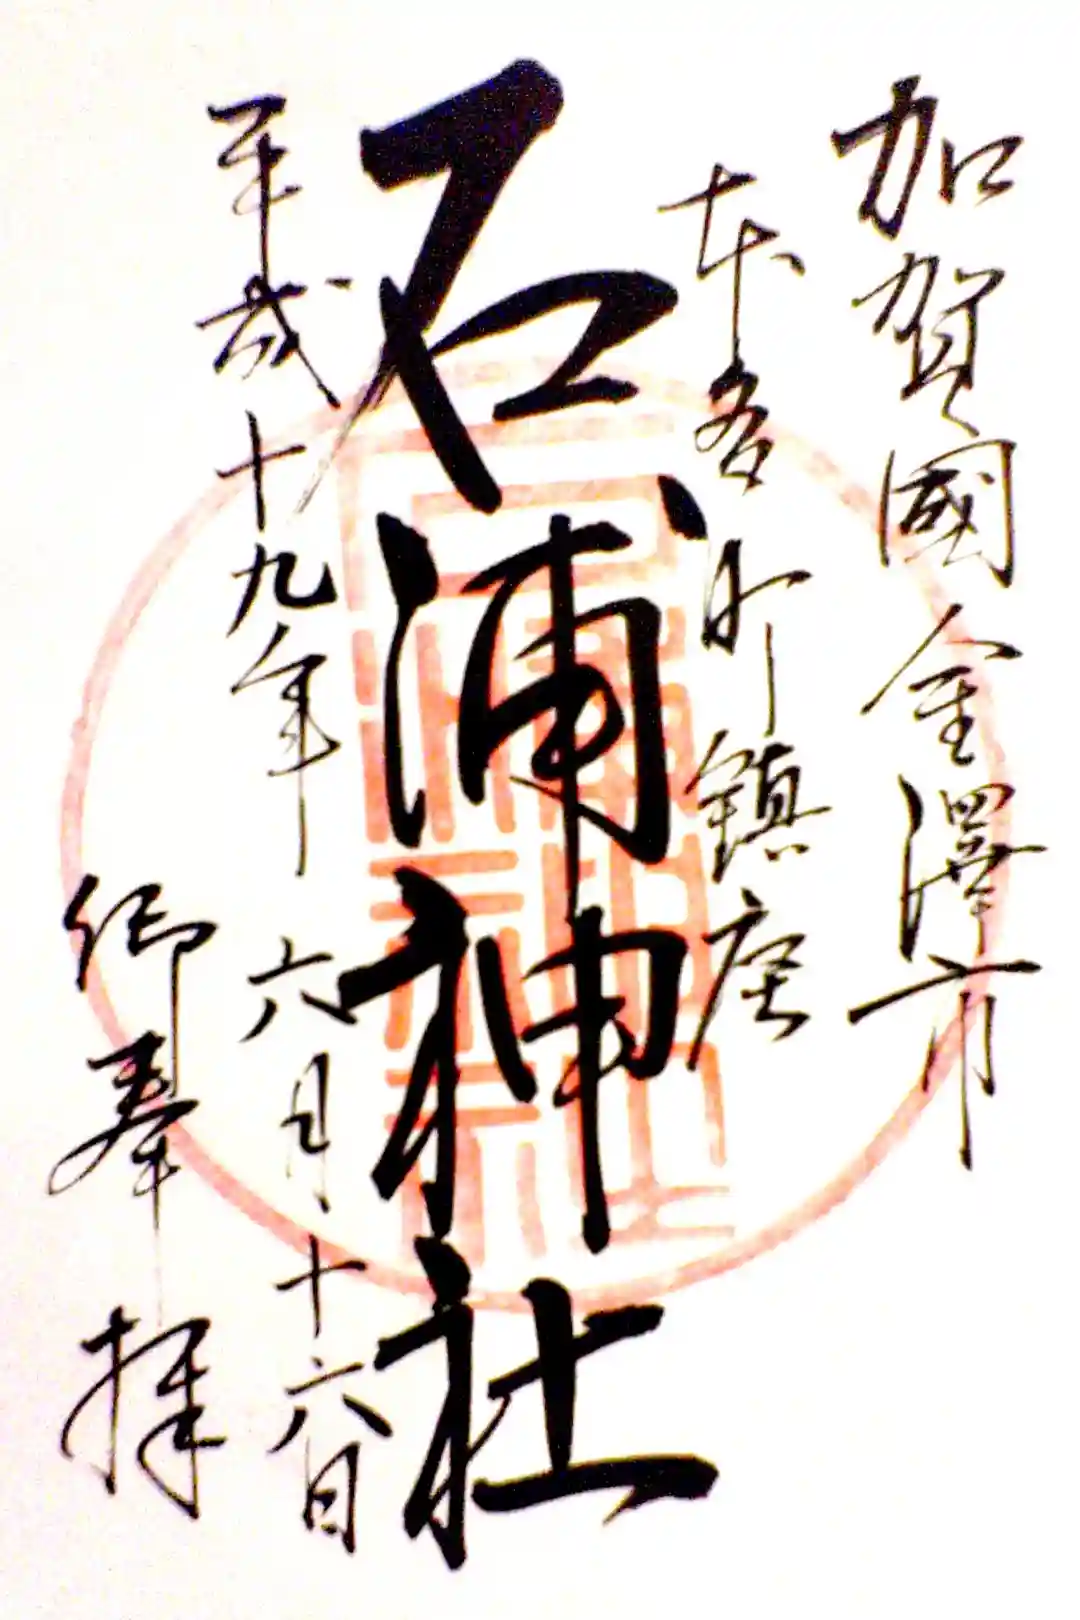 加賀國金澤市
本多町鎮座
石浦神社
平成十九年六月十六日
御奉拝
石浦神社